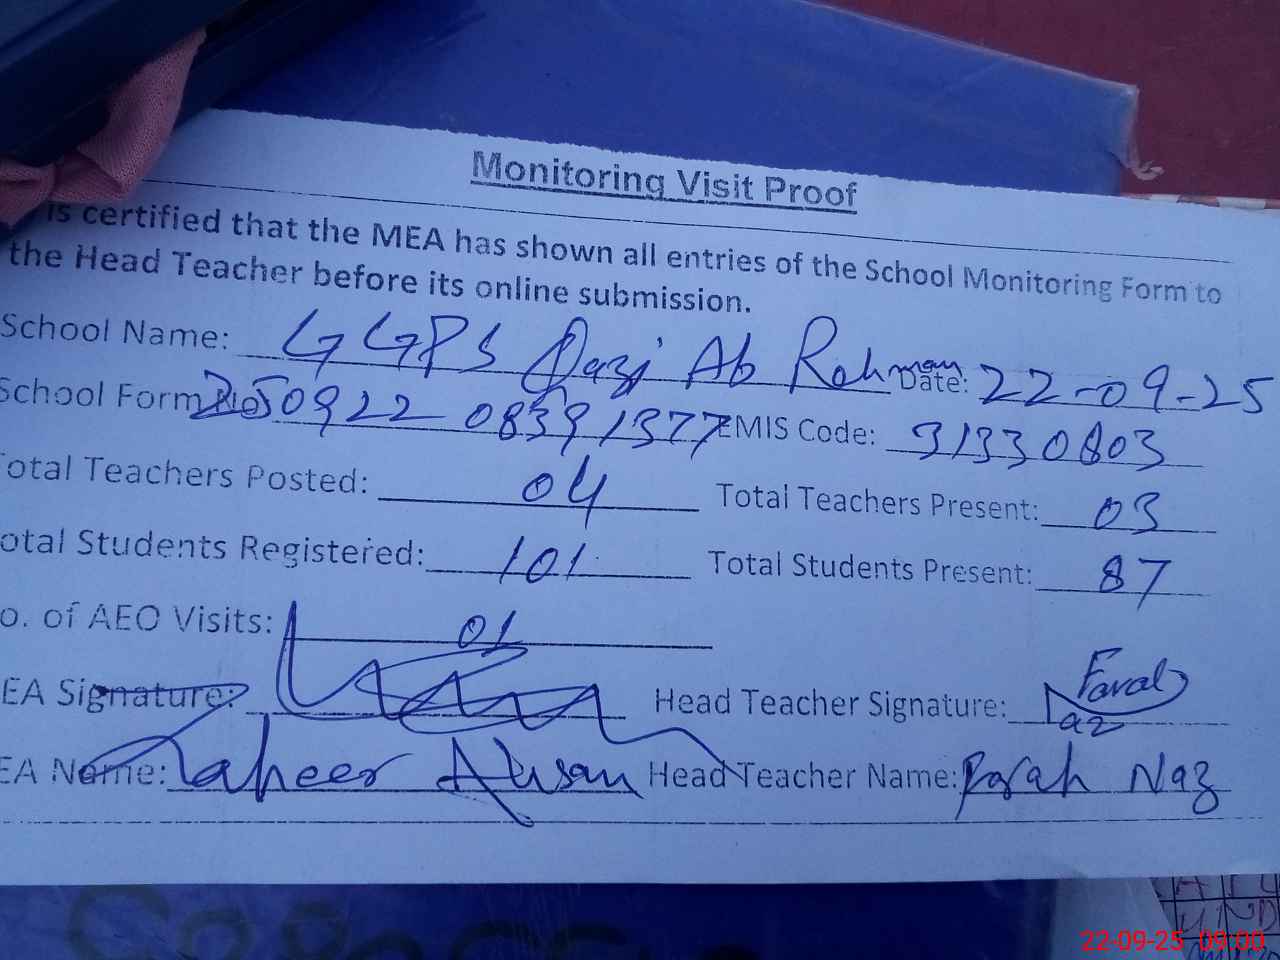 Monitoring Visit Proof
is certified that the MEA has shown all entries of the School Monitoring Form to
the Head Teacher before its online submission.
School Name: GGPS Qazi Ab Rehman Date: 22-09-25
School Form No 250922 08391377 EMIS Code: 31330803
otal Teachers Posted: 04 Total Teachers Present: 03
otal Students Registered: 101 Total Students Present: 87
o. of AEO Visits: 01
EA Signature: Head Teacher Signature: Farah Naz
EA Name: Zaheer Ahsan Head Teacher Name: Farah Naz
22-09-25 09:00